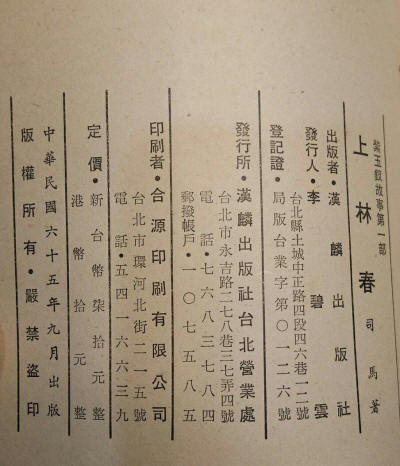 紫玉釵故事第一部
上林春 司馬著
出版者•漢麟出版社
發行人•李碧雲
台北縣土城中正路四段四六巷一二號
登記證•局版台業字第〇一二六號
發行所•漢麟出版社台北營業處
台北市永吉路二七八巷三七弄四號
電話•七六八三七八四
郵撥帳戶•一〇七五八五
印刷者•合源印刷有限公司
台北市環河北街二一五號
電話•五四一六六三九
定價•新台幣柒拾元整
港幣拾元整
中華民國六十五年九月出版
版權所有•嚴禁盜印